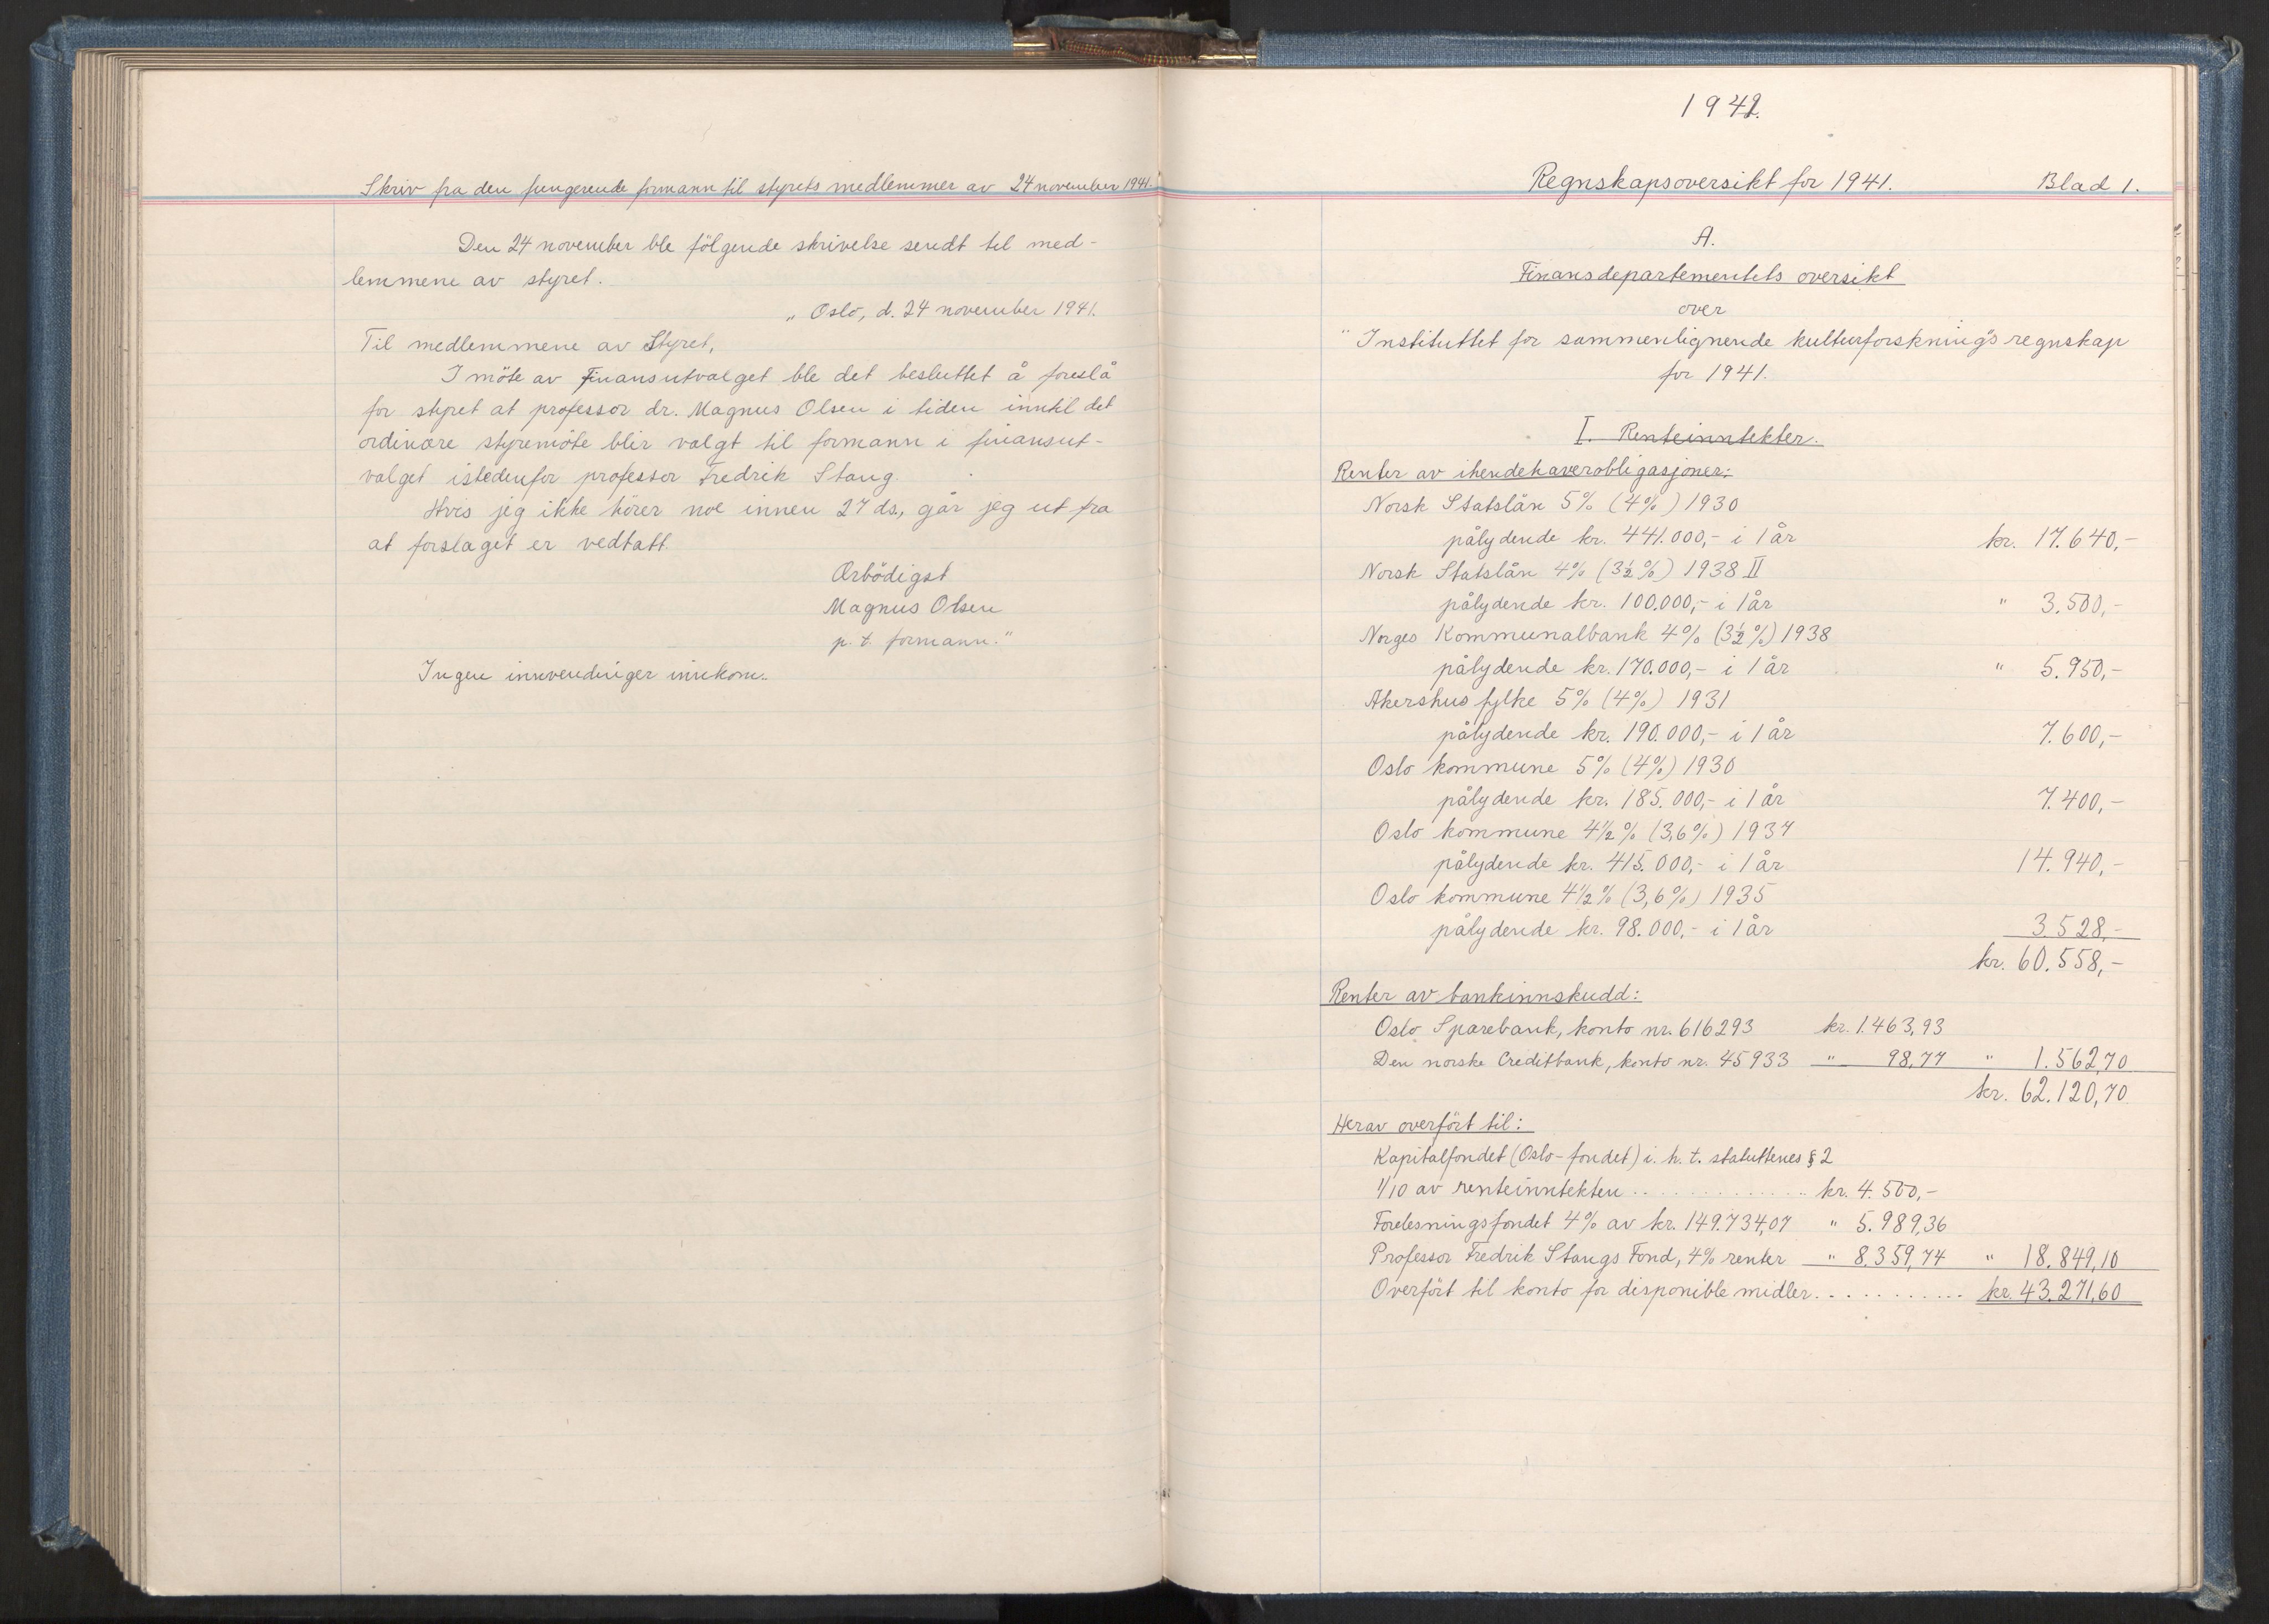 Skriv fra den fungerende formann til styrets medlemmer av 24 november 1941.
Den 24 november ble følgende skrivelse sendt til med-
lemmene av styret.
„ Oslo, d. 24 november 1941.
Til medlemmene av Styret,
I möte av Finansutvalget ble det besluttet å foreslå
for styret at professor dr. Magnus Olsen i tiden inntil det
ordinære styremöte blir valgt til formann i finansut-
valget istedenfor professor Fredrik Stang.
Hvis jeg ikke hörer noe innen 27 ds., går jeg ut fra
at forslaget er vedtatt.
Ærbödigst
Magnus Olsen
p. t. formann."
Ingen innvendinger innkom.
1942.
Regnskapsoversikt for 1941. Blad 1.
A.
Finansdepartementets oversikt
over
"Instituttet for sammenlignende kulturforskning"s regnskap
for 1941.
I. Renteinntekter.
Renter av ihendehaverobligasjoner:
Norsk Statslån 5% (4%) 1930
pålydende kr. 441.000,- i 1 år kr. 17.640,-
Norsk Statslån 4% (3½%) 1938 II
pålydende kr. 100.000,- i 1 år " 3.500,-
Norges Kommunalbank 4% (3½%) 1938
pålydende kr. 170.000,- i 1 år " 5.950,-
Akershus fylke 5% (4%) 1931
pålydende kr. 190.000,- i 1 år 7.600,-
Oslo kommune 5% (4%) 1930
pålydende kr. 185.000,- i 1 år 7.400,-
Oslo kommune 4½% (3,6%) 1937
pålydende kr. 415.000,- i 1 år 14.940,-
Oslo kommune 4½% (3,6%) 1935
pålydende kr. 98.000,- i 1 år 3.528,-
kr. 60.558,-
Renter av bankinnskudd:
Oslo Sparebank, konto nr. 616293 kr. 1.463,93
Den norske Creditbank, konto nr. 45933 " 98,77 " 1.562,70
kr. 62.120,70
Herav overfört til:
Kapitalfondet (Oslo-fondet) i. h. t. statuttenes § 2
1/10 av renteinntekten .............. kr. 4.500,-
Forelesningsfondet 4% av kr. 149.734,07 " 5.989,36
Professor Fredrik Stangs Fond, 4% renter " 8.359,74 " 18.849,10
Overfört til konto for disponible midler ............ kr. 43.271,60